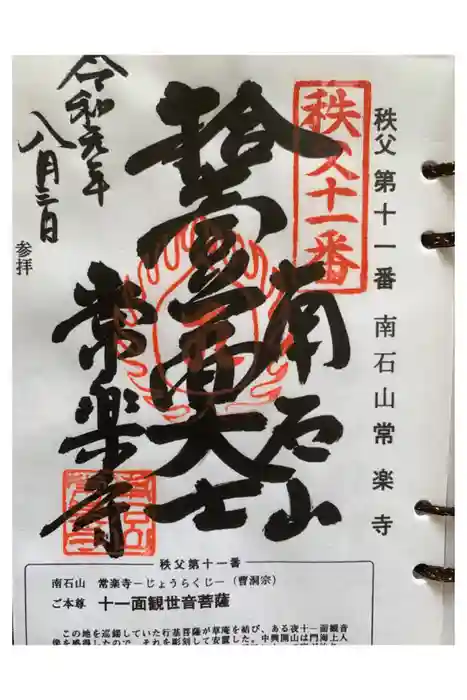 秩父第十一番 南石山常楽寺
秩父十一番
南石山
拾壹面大士
常楽寺
令和元年
八月三日
参拝
秩父第十一番
南石山 常楽寺―じょうらくじ―（曹洞宗）
ご本尊 十一面観世音菩薩
この地を巡錫していた行基菩薩が草庵を結び、ある夜十一面観音
像を感得したので、それを彫刻して安置した。中興開山は門海上人